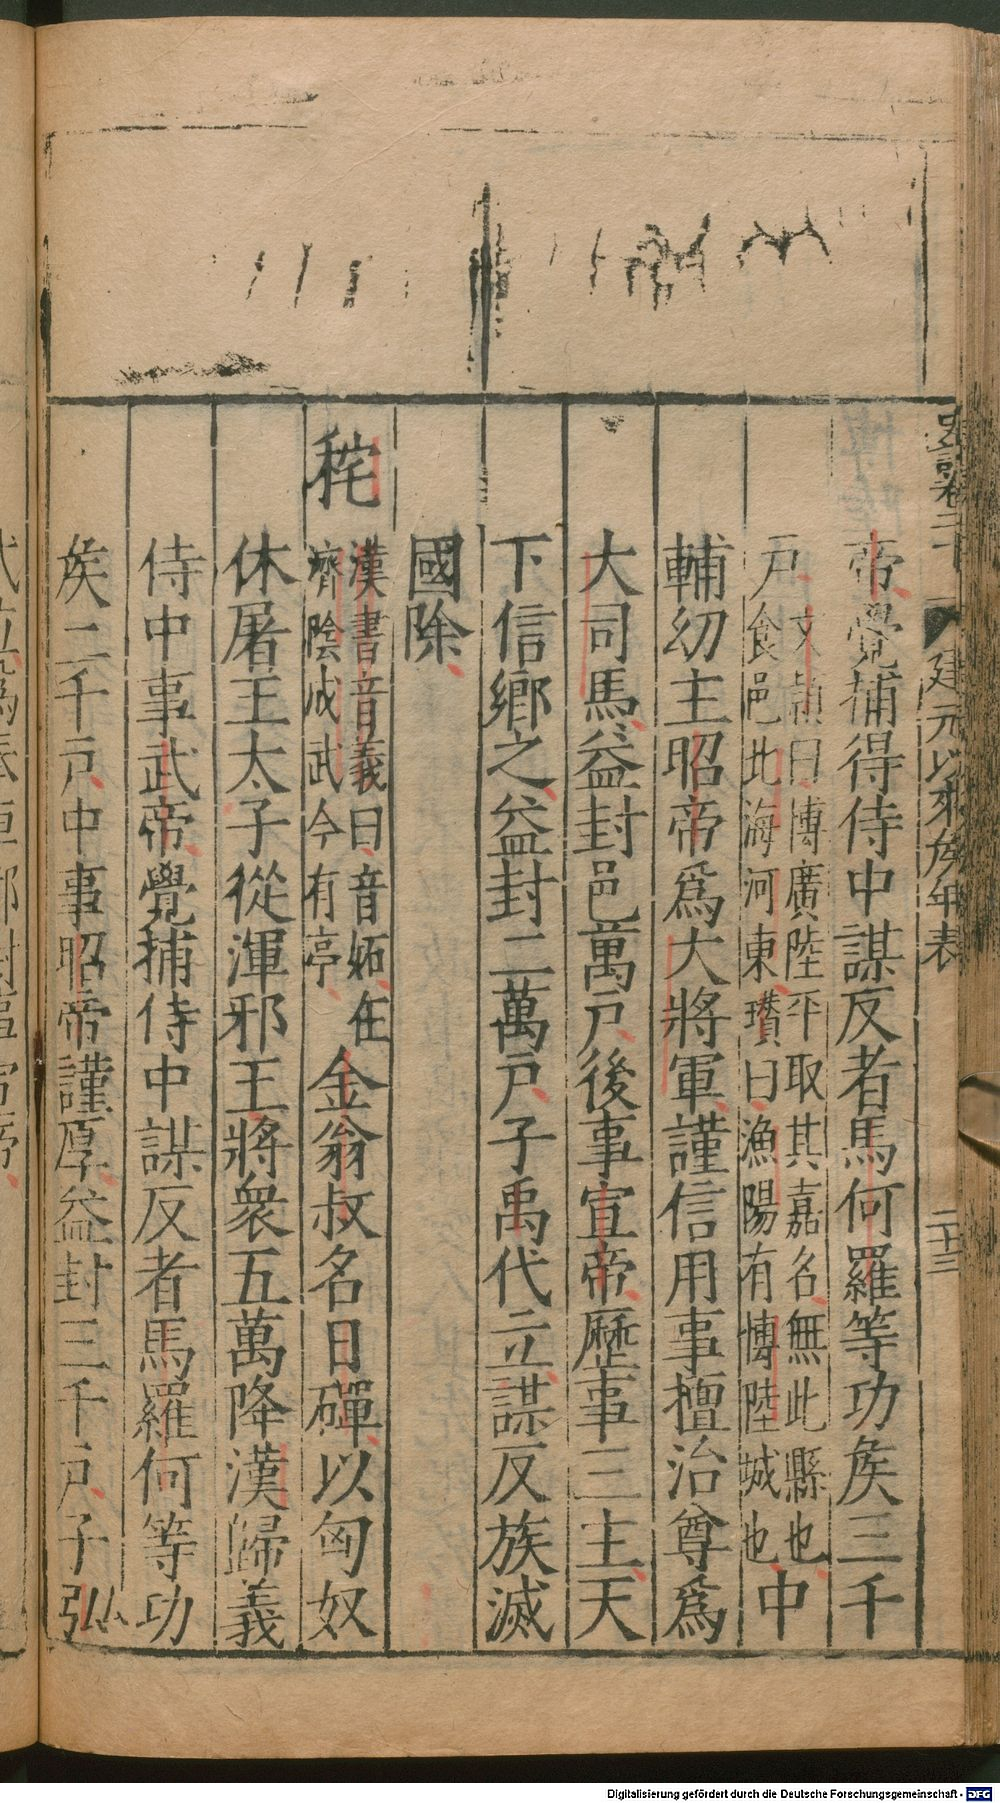 史記卷二十
建元以來矦年表
二十三
帝覺捕得侍中謀反者馬何羅等功矦三千
戶文穎曰博廣陸平取其嘉名無此縣也
食邑北海河東瓚曰漁陽有博陸城也中
輔幼主昭帝爲大將軍謹信用事擅治尊爲
大司馬益封邑萬戶後事宣帝歷事三主天
下信鄉之益封二萬戶子禹代立謀反族滅
國除
秺漢書音義曰音妬在
濟陰成武今有亭金翁叔名日磾以匈奴
休屠王太子從渾邪王將衆五萬降漢歸義
侍中事武帝覺捕侍中謀反者馬羅何等功
矦二千戶中事昭帝謹厚益封三千戶子弘
Digitalisierung gefördert durch die Deutsche Forschungsgemeinschaft - DFG